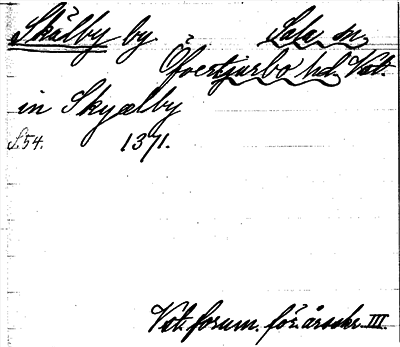 Skälby by Sala sn,
Öfvertjurbo hd, Vstl.
in Skyælby
S. 54. 1371.
Vstl. fornm. för. årsskr. III.